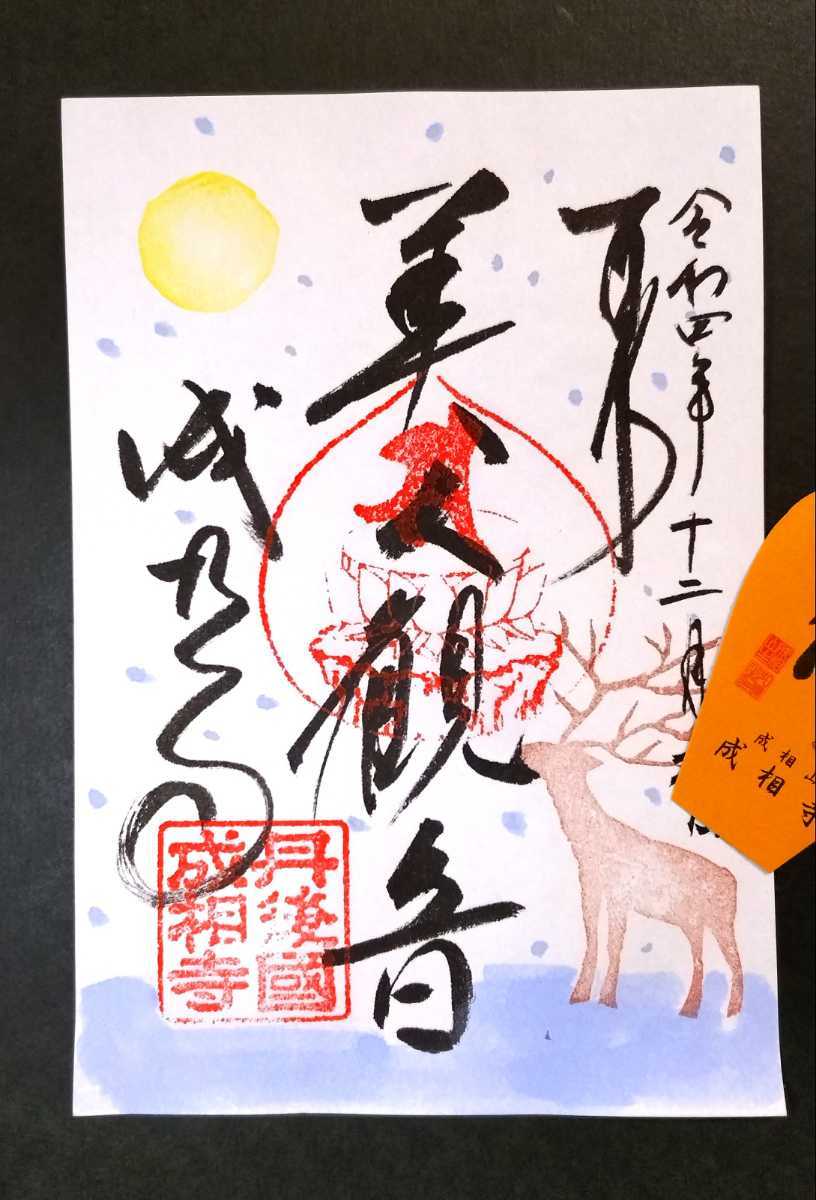 令和四年十二月
奉拝
美人観音
成相寺
丹後國
成相寺
成相山
成相寺